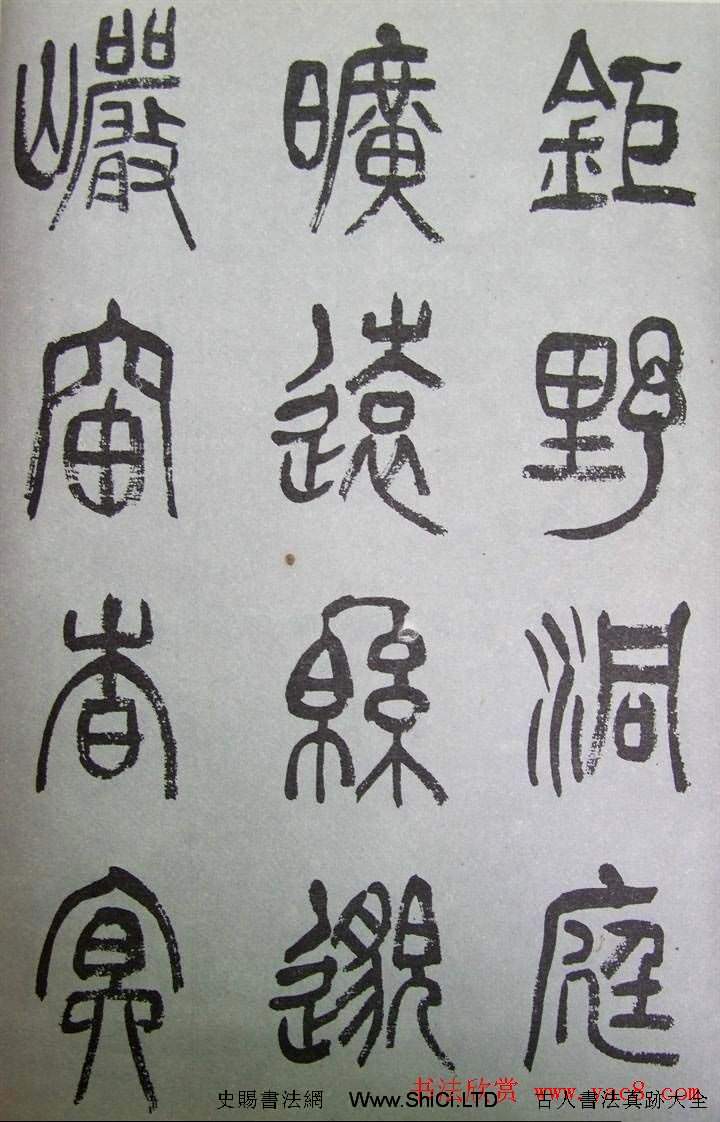 鉅野洞庭
曠遠緜邈
巖岫杳冥
史賜書法網 Www.ShiCi.LTD 古人書法真跡大全
书法欣赏 www.yac8.com